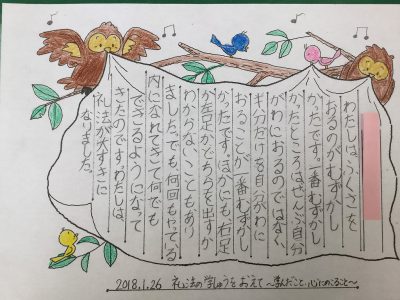 わたしは、ふくさを
おるのがむずかし
かったです。一番むずかし
かったところはぜんぶ自分
がわにおるのではなく、
半分だけを自分がわに
おることが一番むずかし
かったです。ほかにも右足
か左足かどちらを出すか
わからないこともあり
ました。でも何回もやっている
内になれてきて何でも
できるようになって
きたのです。わたしは、
礼法が大すきに
なりました。
2018.1.26 礼法の学しゅうをおえて〜学んだこと、心にのこること〜